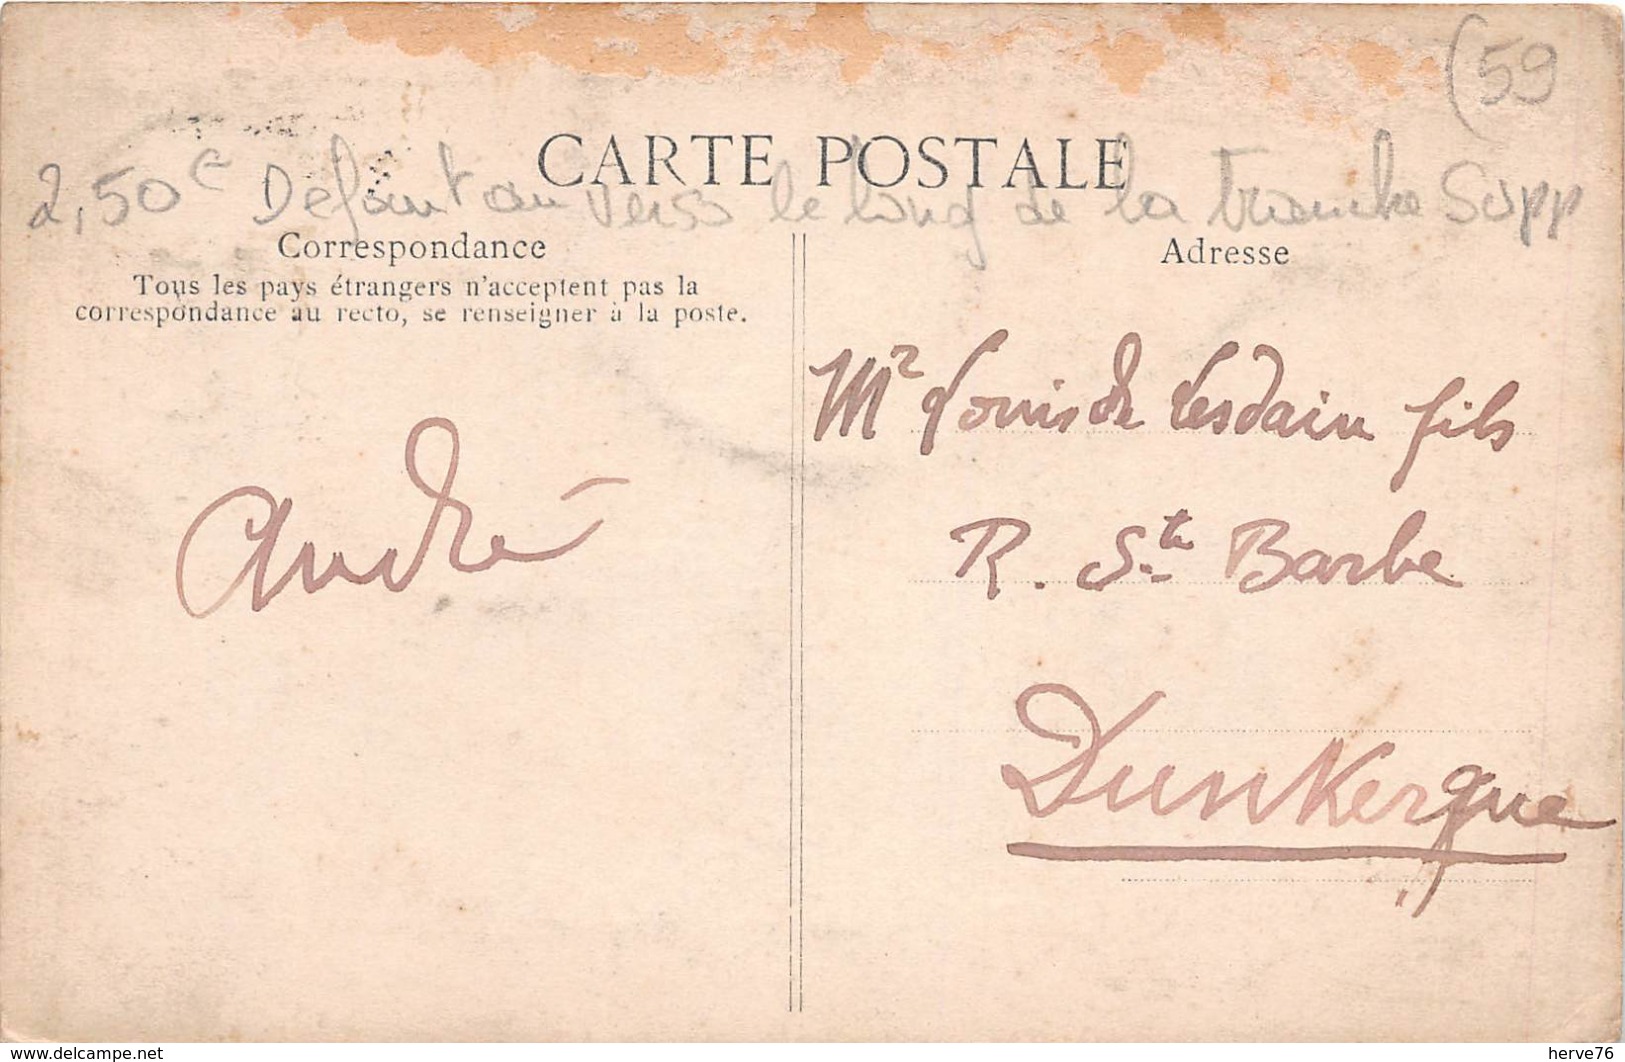 (59
CARTE POSTALE
2,50€ Défaut au verso le long de la tranche Supp
Correspondance
Tous les pays étrangers n'acceptent pas la
correspondance au recto, se renseigner à la poste.
Adresse
Mr Louis de Lesdain fils
R. Ste Barbe
Dunkerque
André
www.delcampe.net
herve76